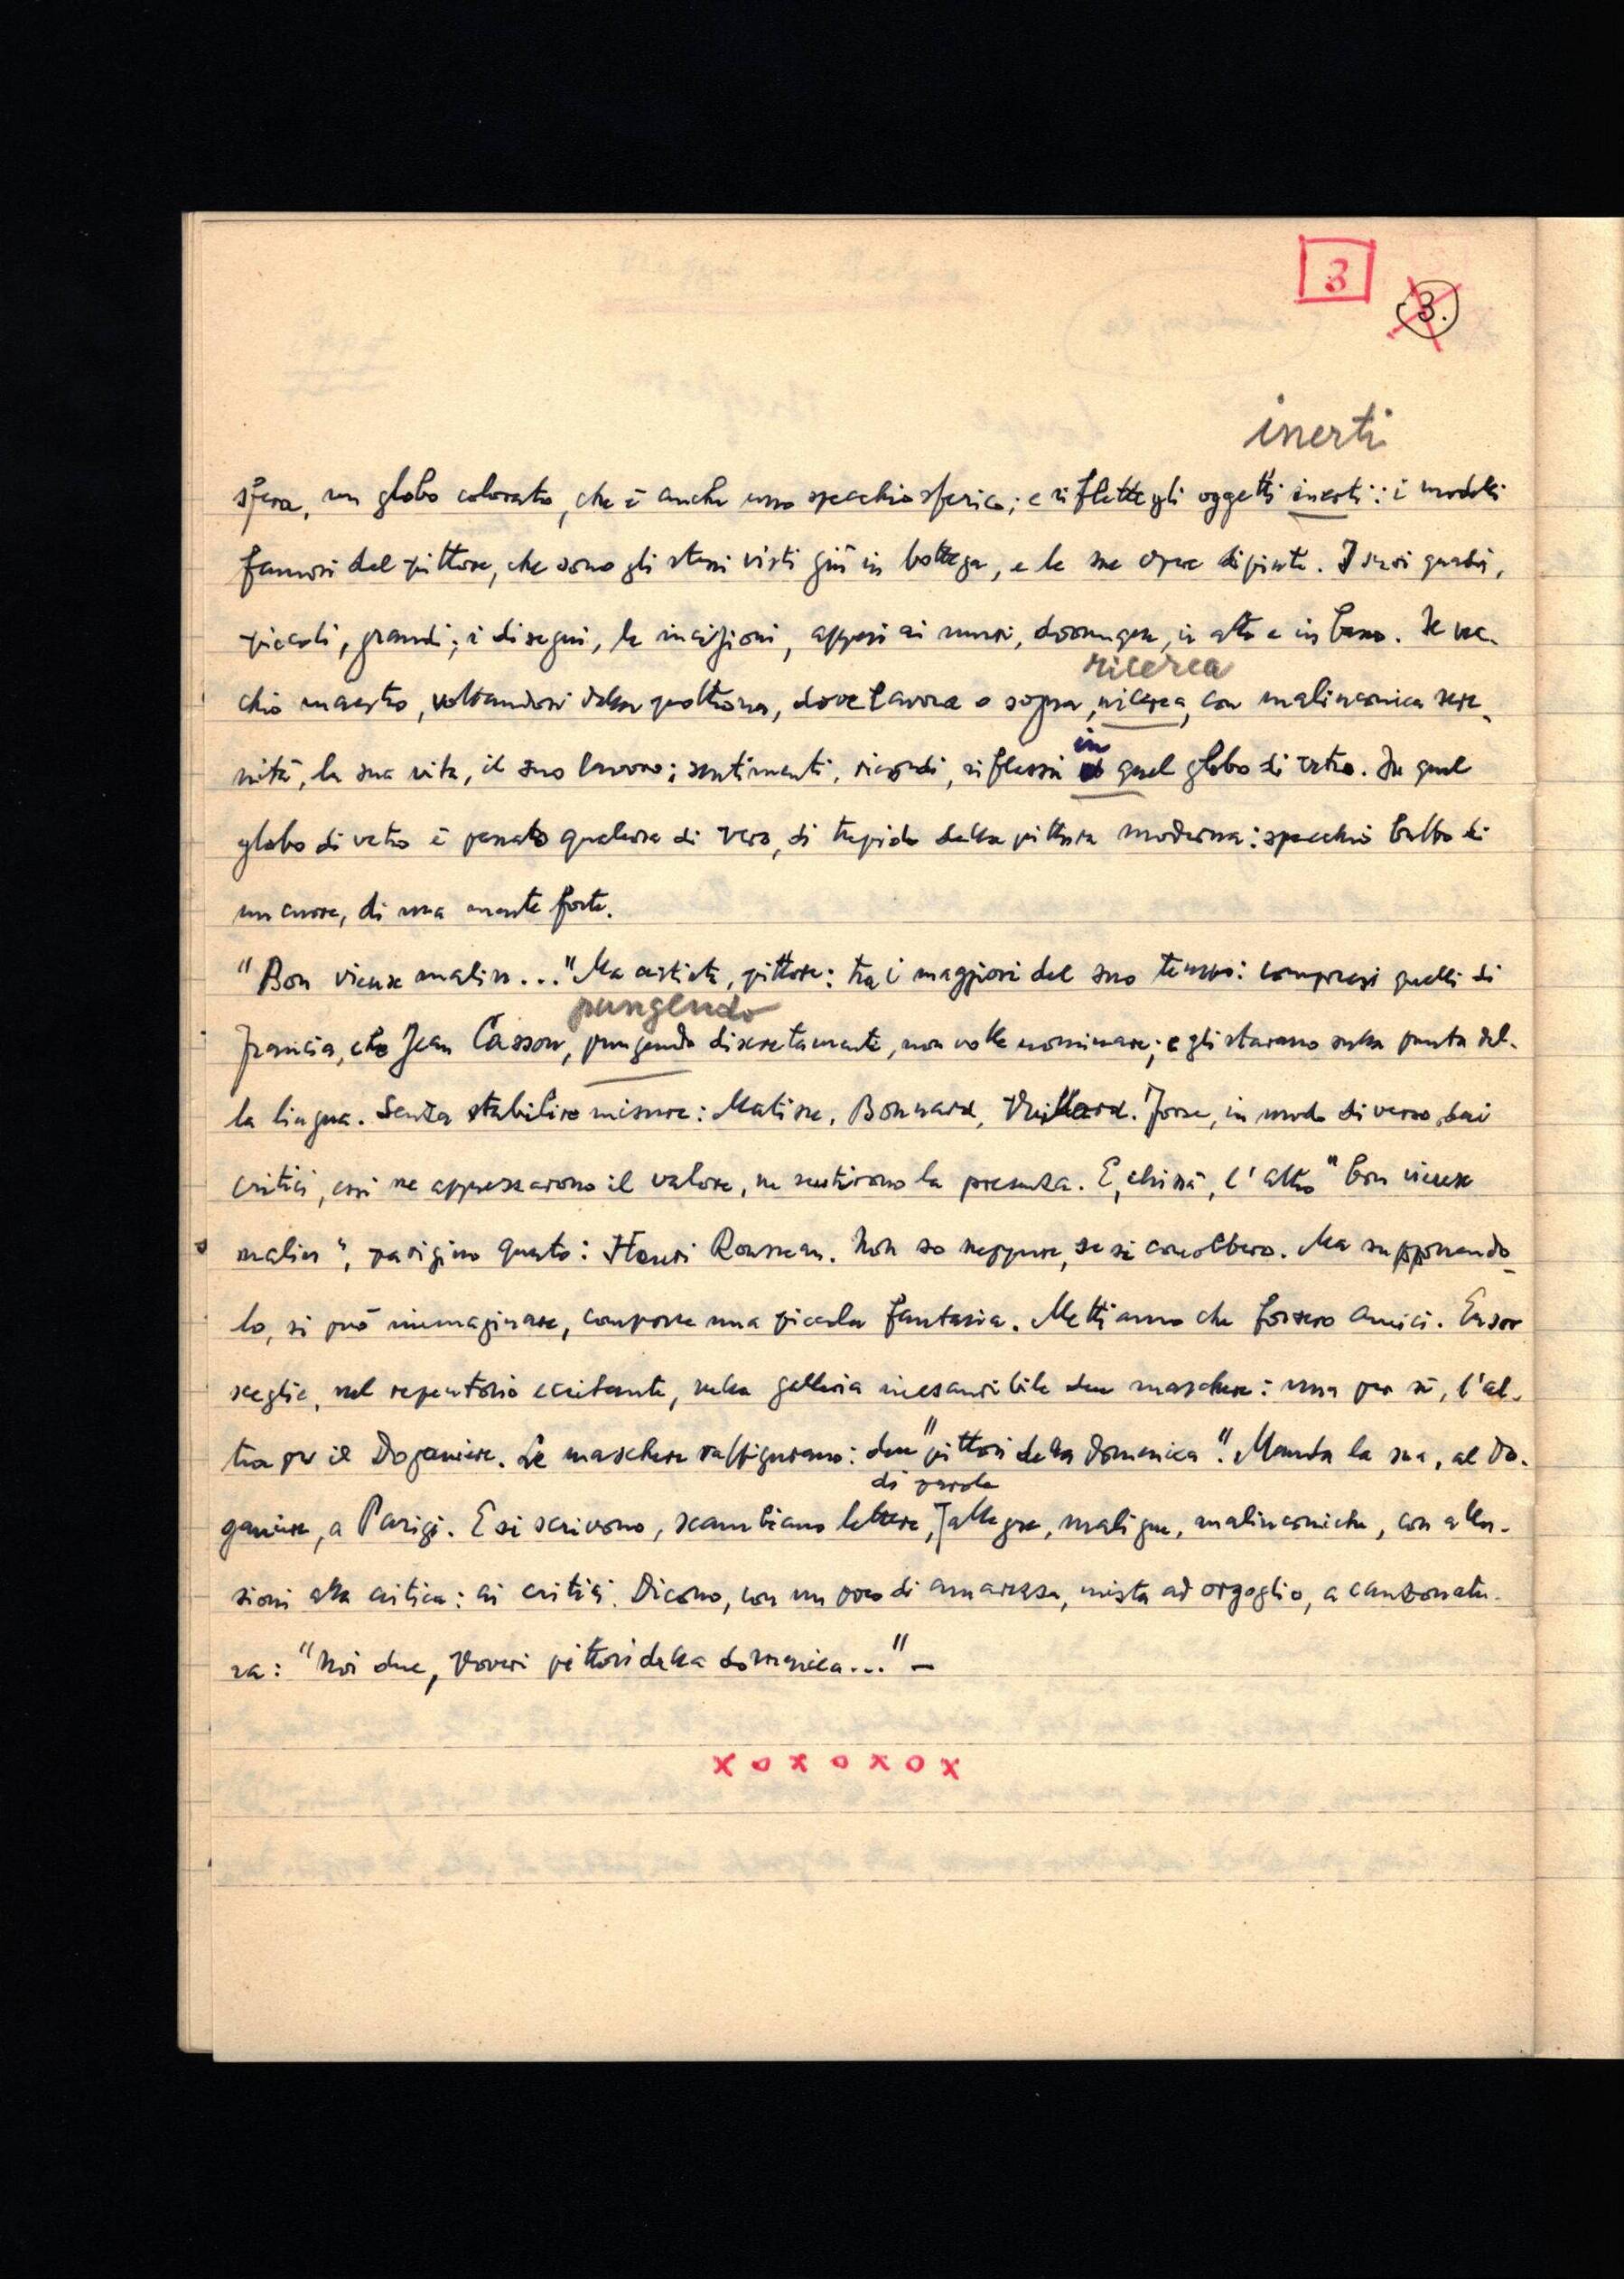 3
3.
inerti
sfera, un globo colorato, che è anche uno specchio sferico; e riflette gli oggetti inerti: i modelli
famosi del pittore, che sono gli stessi visti giù in bottega, e le sue opere dipinte. I suoi quadri,
piccoli, grandi; i disegni, le incisioni, appesi ai muri, dovunque, in alto e in basso. Il vec-
ricerca
chio maestro, voltandosi dalla poltrona, dove lavora o sogna, ricerca, con malinconica sere-
in
nità, la sua vita, il suo lavoro; sentimenti, ricordi, riflessi quel globo di vetro. In quel
globo di vetro è passato qualcosa di vero, di trepido della pittura moderna: specchio bello di
un cuore, di una mente forte.
"Bon vieux malin..." Ma artista, pittore: tra i maggiori del suo tempo: compresi quelli di
pungendo
Francia, che Jean Cassou, pungendo discretamente, non volle nominare; e gli stavano sulla punta del-
la lingua. Senza stabilire misure: Matisse, Bonnard, Vuillard. Forse, in modo diverso dai
critici, essi ne apprezzarono il valore, ne sentirono la presenza. E, chissà, l'altro "bon vieux
malin", parigino questo: Henri Rousseau. Non so neppure, se si conobbero. Ma supponendo-
lo, si può immaginare, comporre una piccola fantasia. Mettiamo che fossero amici. Ensor
sceglie, nel repertorio eccitante, nella galleria inesauribile due maschere: una per sè, l'al-
tra per il Doganiere. Le maschere raffigurano: due "pittori della domenica". Manda la sua, al Do-
di parole
ganiere, a Parigi. E si scrivono, scambiano lettere, allegre, maligne, malinconiche, con allu-
sioni alla critica: ai critici. Dicono, con un poco di amarezza, mista ad orgoglio, a canzonatu-
ra: "Noi due, poveri pittori della domenica..." —
x o x o x o x